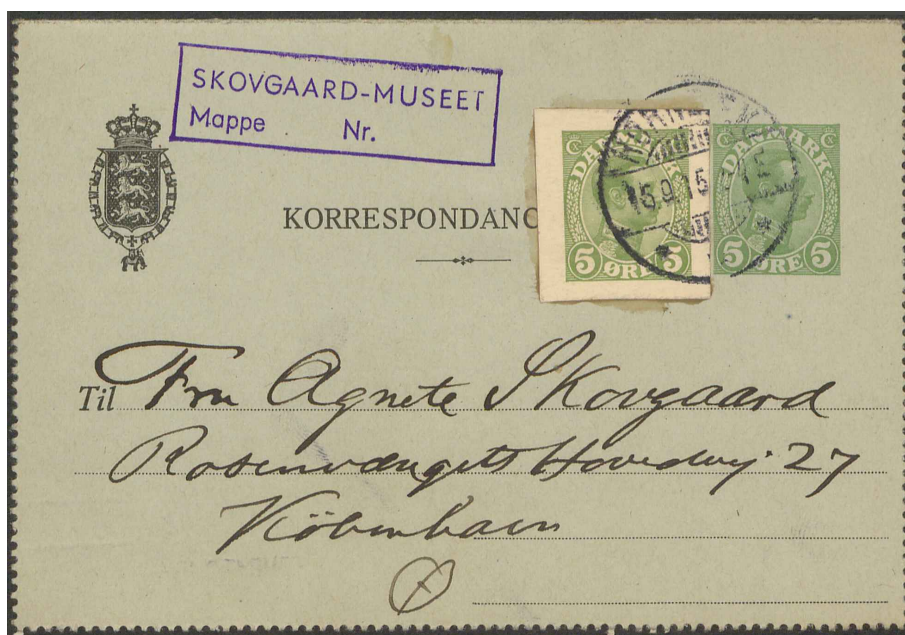 SKOVGAARD-MUSEET
Mappe Nr.
KORRESPONDANC
DANMARK
DANMARK
15.9.15
5 ØRE 5
5 ØRE 5
Til Fru Agnete Skovgaard
Rosenvængets Hovedvej 27
København